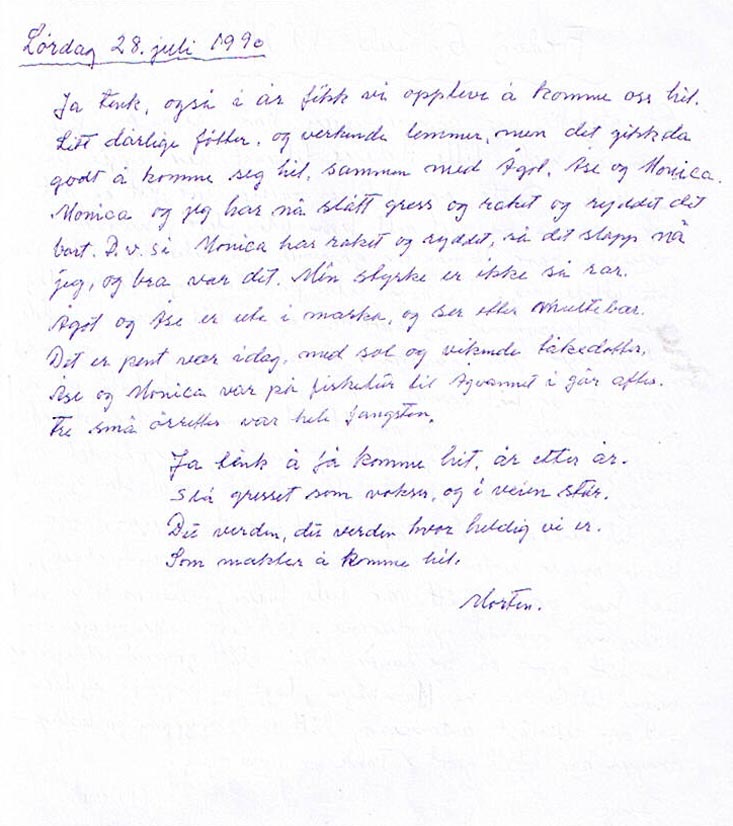 Lørdag 28. juli 1990
Ja tenk, også i år fikk vi oppleve å komme oss hit.
Litt dårlige føtter, og verkende lemmer, men det gikk da
godt å komme seg hit, sammen med Ågot, Åse og Monica.
Monica og jeg har nå slått gress og raket og ryddet det
bort. D.v.si Monica har raket og ryddet, så det slapp nå
jeg, og bra var det. Min styrke er ikke så rar.
Ågot og Åse er ute i marka, og ser etter multebær.
Det er pent vær idag, med sol og vikende tåkedotter,
Åse og Monica var på fisketur til Åvannet i går aftes.
Tre små ørreter var hele fangsten.
Ja tenk å få komme hit, år etter år.
Slå gresset som vokser, og i veien står.
Du verden, du verden hvor heldig vi er.
Som makter å komme hit.
Morten.